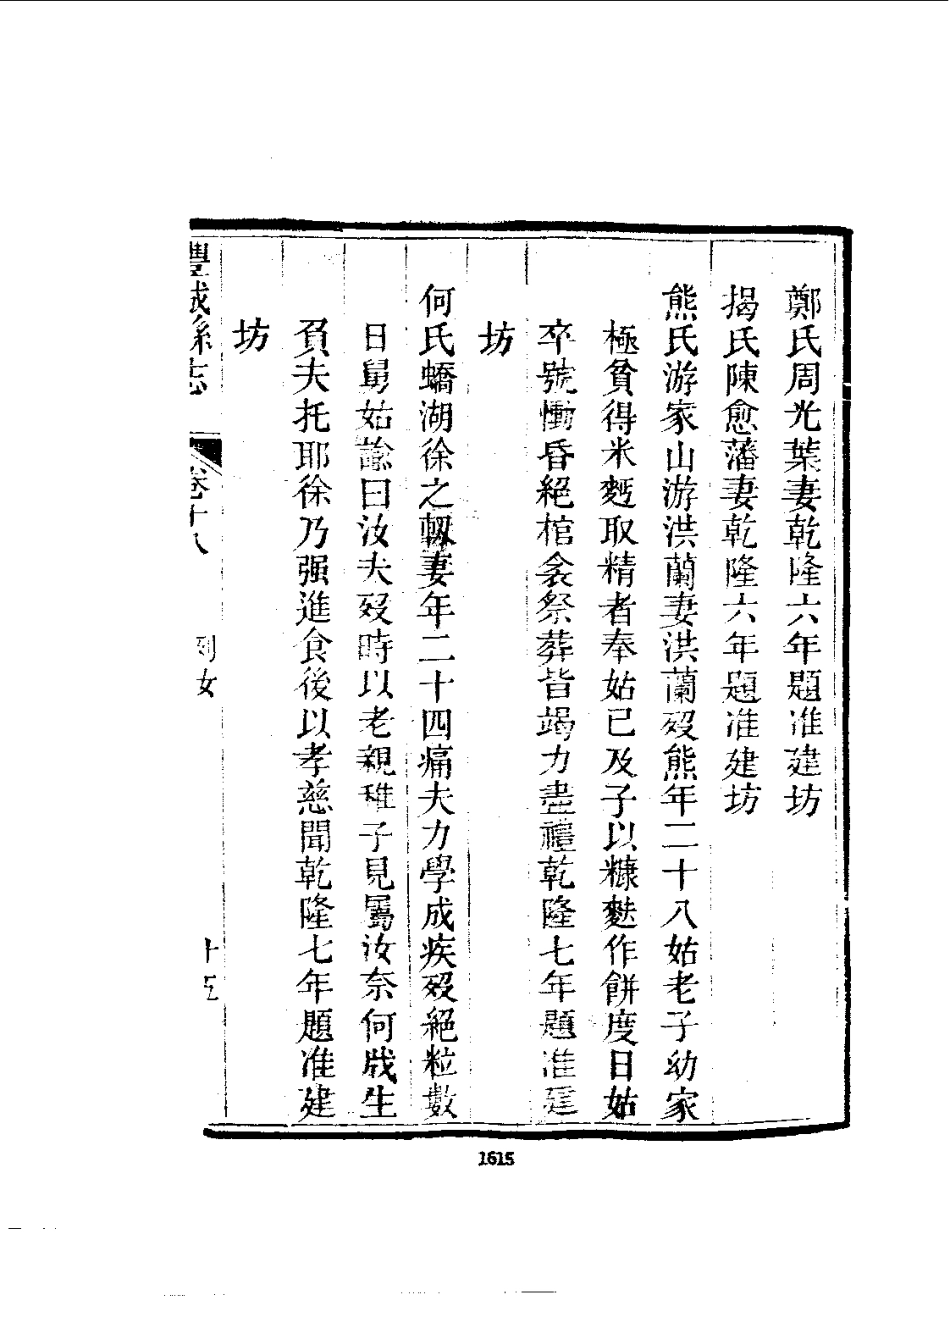 鄭氏周光葉妻乾隆六年題准建坊
揭氏陳愈藩妻乾隆六年題准建坊
熊氏游家山游洪蘭妻洪蘭歿熊年二十八姑老子幼家
極貧得米麪取精者奉姑已及子以糠麩作餅度日姑
卒號慟昏絕棺衾祭葬皆竭力盡禮乾隆七年題准建
坊
何氏蟜湖徐之妻年二十四痛夫力學成疾歿絕粒數
日舅姑諭曰汝夫歿時以老親稚子見屬汝奈何戕生
負夫托耶徐乃强進食後以孝慈聞乾隆七年題准建
坊
豐城縣志 卷十八 列女 十五
1615